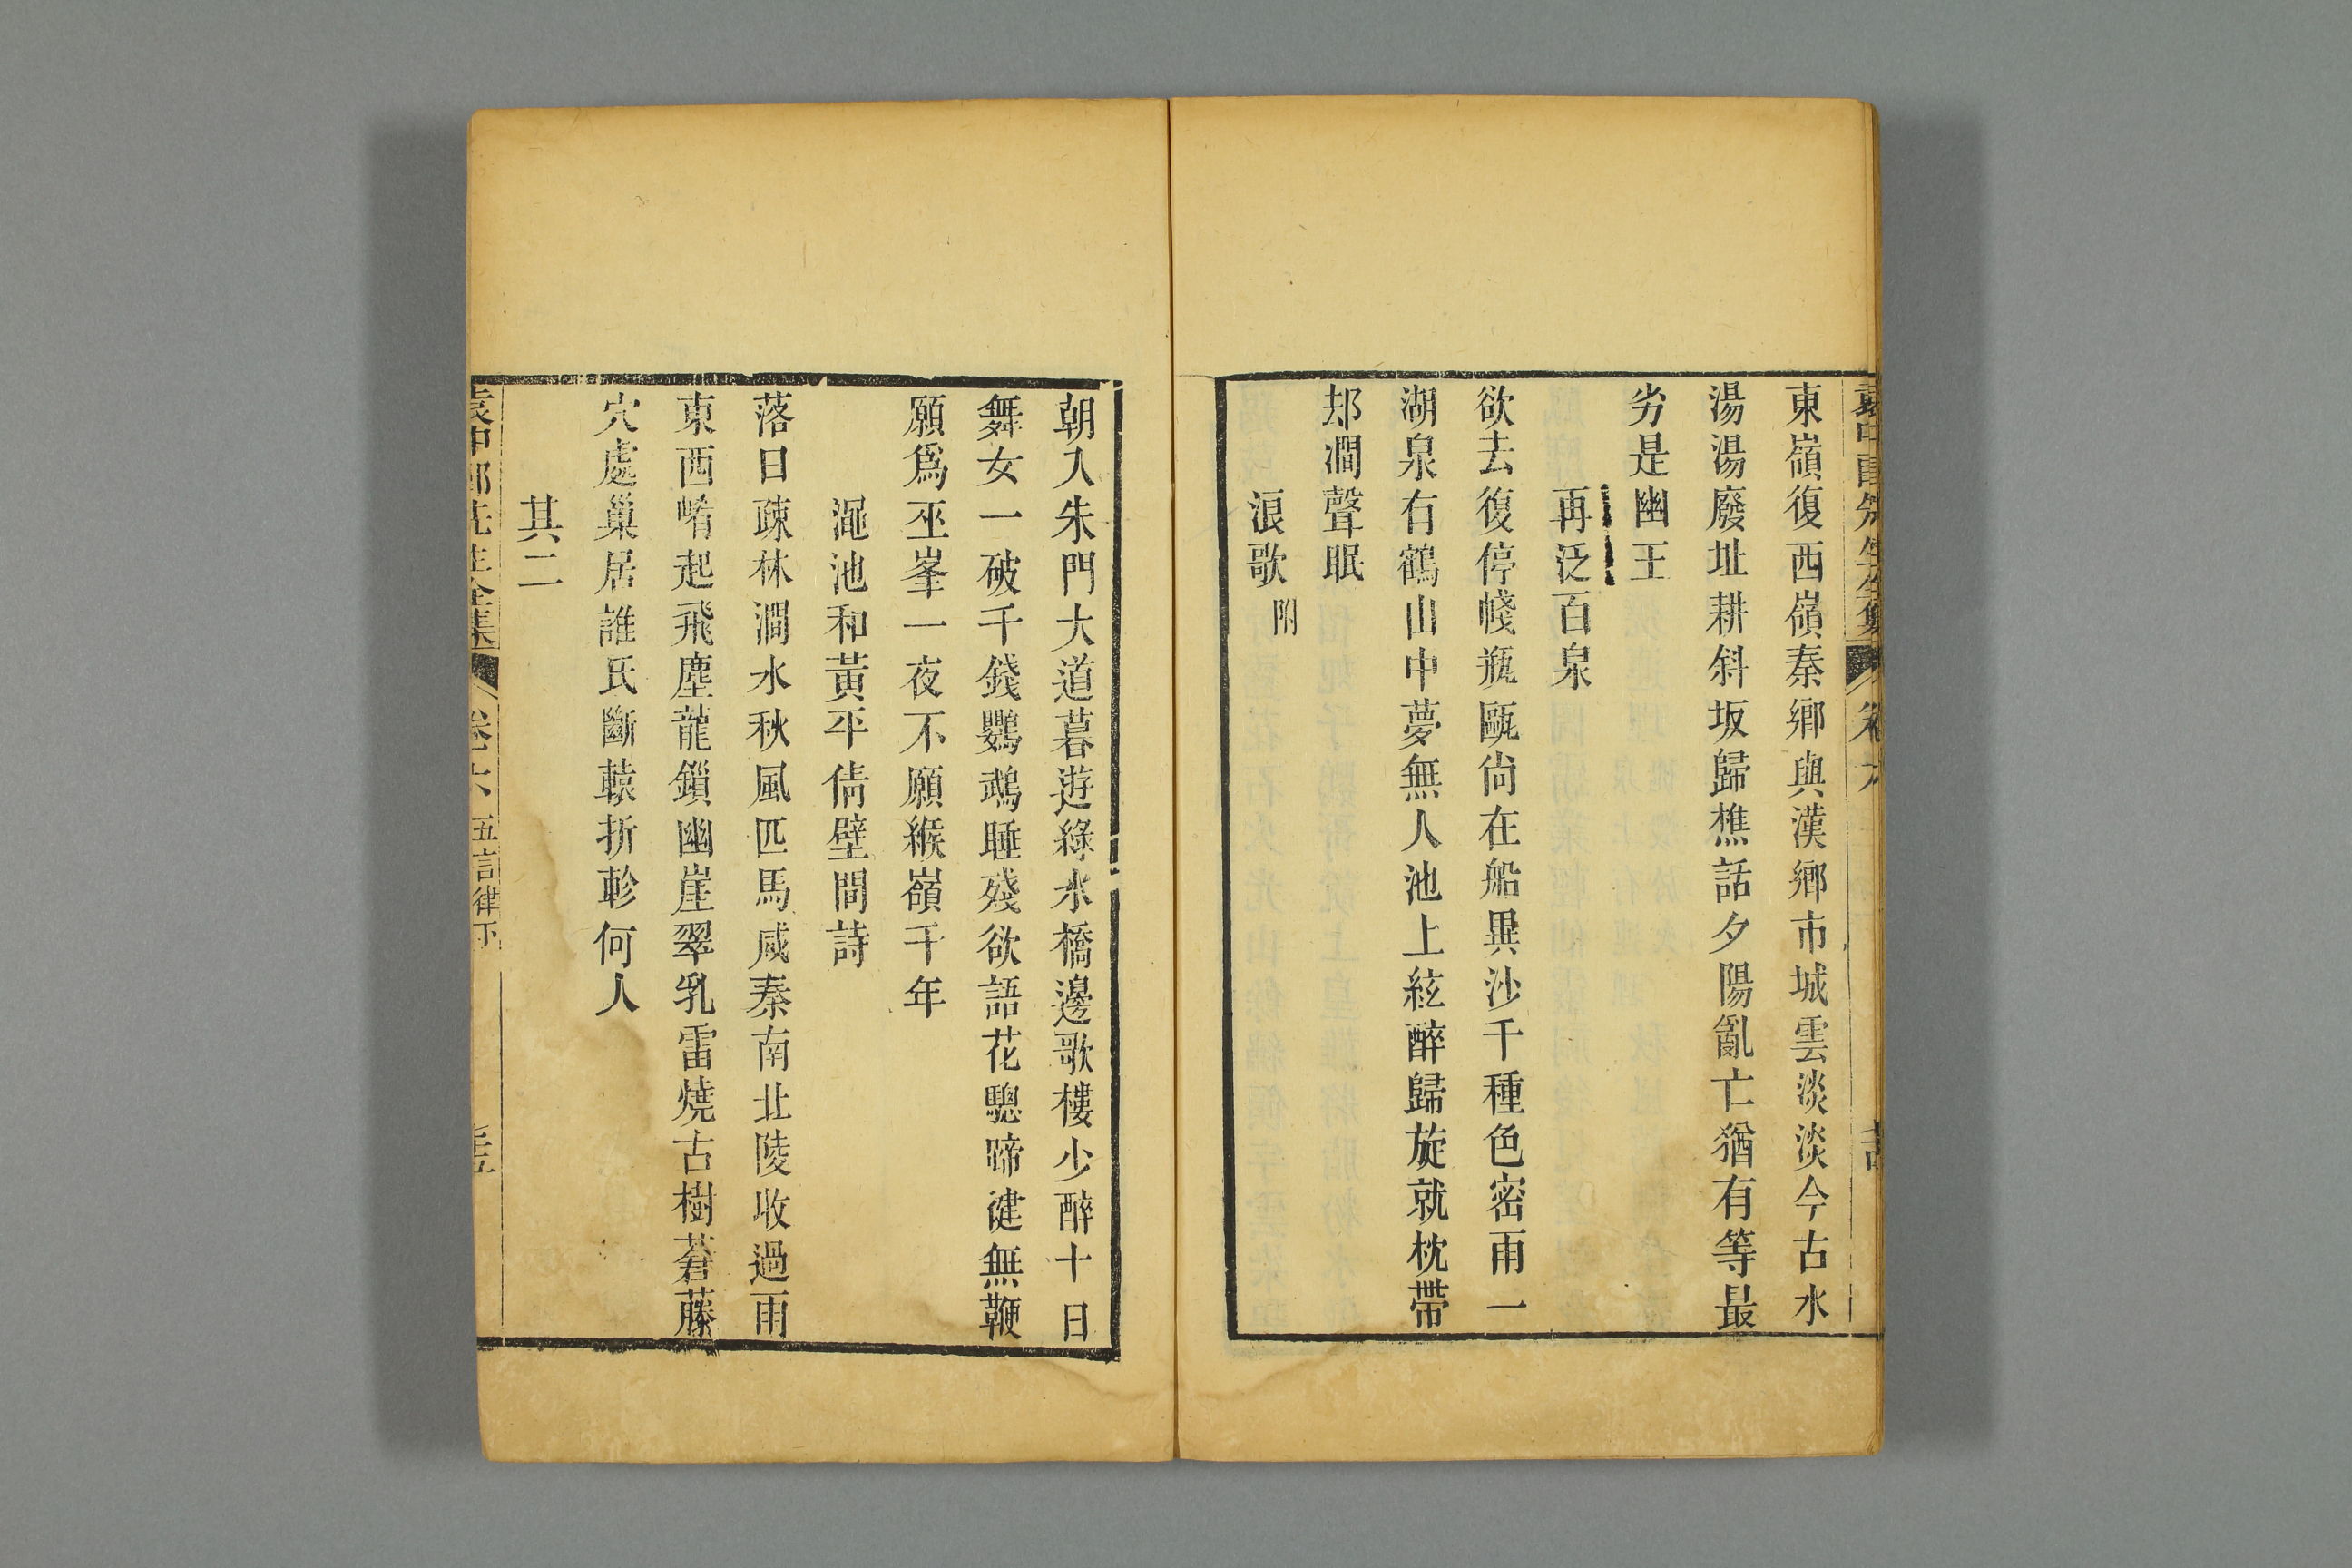 東嶺復西嶺秦鄉與漢鄉市城雲淡淡今古水
湯湯廢址耕斜坂歸樵話夕陽亂亡猶有等最
劣是幽王
再泛百泉
欲去復停幰瓶甌尙在船異沙千種色密雨一
湖泉有鶴山中夢無人池上絃醉歸旋就枕帶
却澗聲眠
浪歌附
朝入朱門大道暮遊綠水橋邊歌樓少醉十日
舞女一破千錢鸚鵡睡殘欲語花驄啼健無鞭
願爲巫峯一夜不願緱嶺千年
澠池和黃平倩壁間詩
落日疎林澗水秋風匹馬咸秦南北陵收過雨
東西崤起飛塵龍鎖幽崖翠乳雷燒古樹蒼藤
穴處巢居誰氏斷轅折軫何人
其二
袁中郎先生全集 卷十六 五言律下